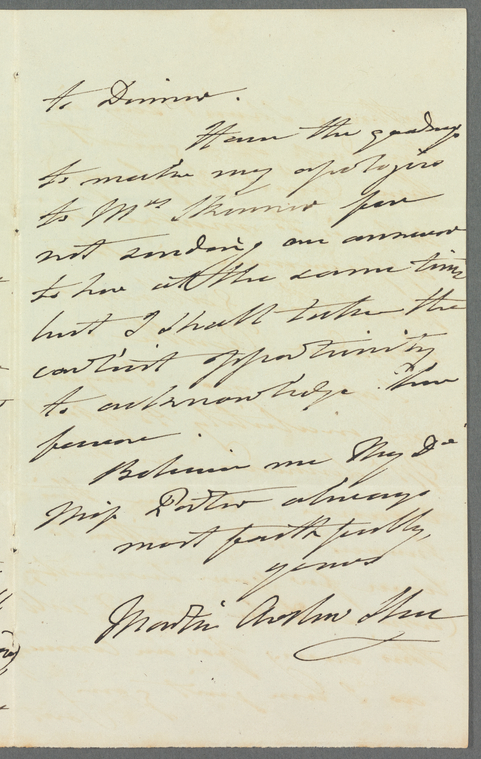 to Dinner.
Have the goodness
to make my apologies
to Mrs Skinner for
not sending an answer
to her at the same time
but I shall take the
earliest opportunity
to acknowledge her
favour
Believe me My Dr
Miss Porter always
most faithfully,
yours
Martin Archer Shee